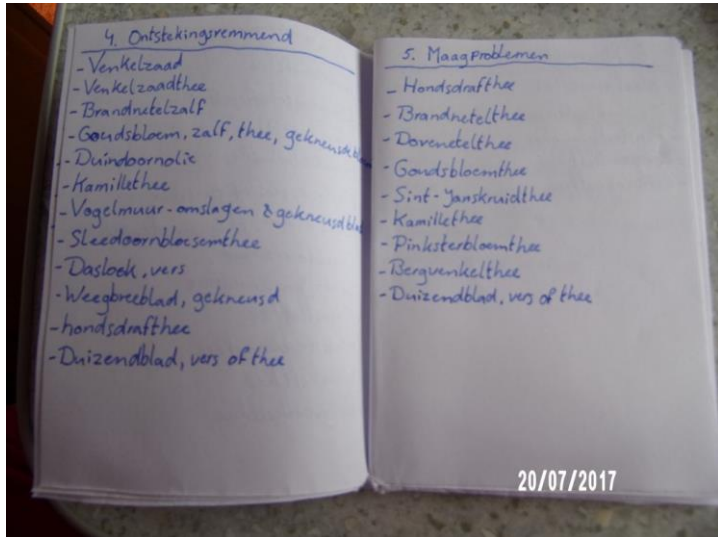 4. Ontstekingsremmend
- Venkelzaad
- Venkelzaadthee
- Brandnetelzalf
- Goudsbloem, zalf, thee, gekneusde
- Duindoornolie
- Kamillethee
- Vogelmuur-omslagen & gekneusd blad
- Sleedoornbloesemthee
- Daslook, vers
- Weegbreeblad, gekneusd
- hondsdrafthee
- Duizendblad, vers of thee
5. Maagproblemen
- Hondsdrafthee
- Brandnetelthee
- Dovenetelthee
- Goudsbloemthee
- Sint-Janskruidthee
- Kamillethee
- Pinksterbloemthee
- Bergvenkelthee
- Duizendblad, vers of thee
20/07/2017